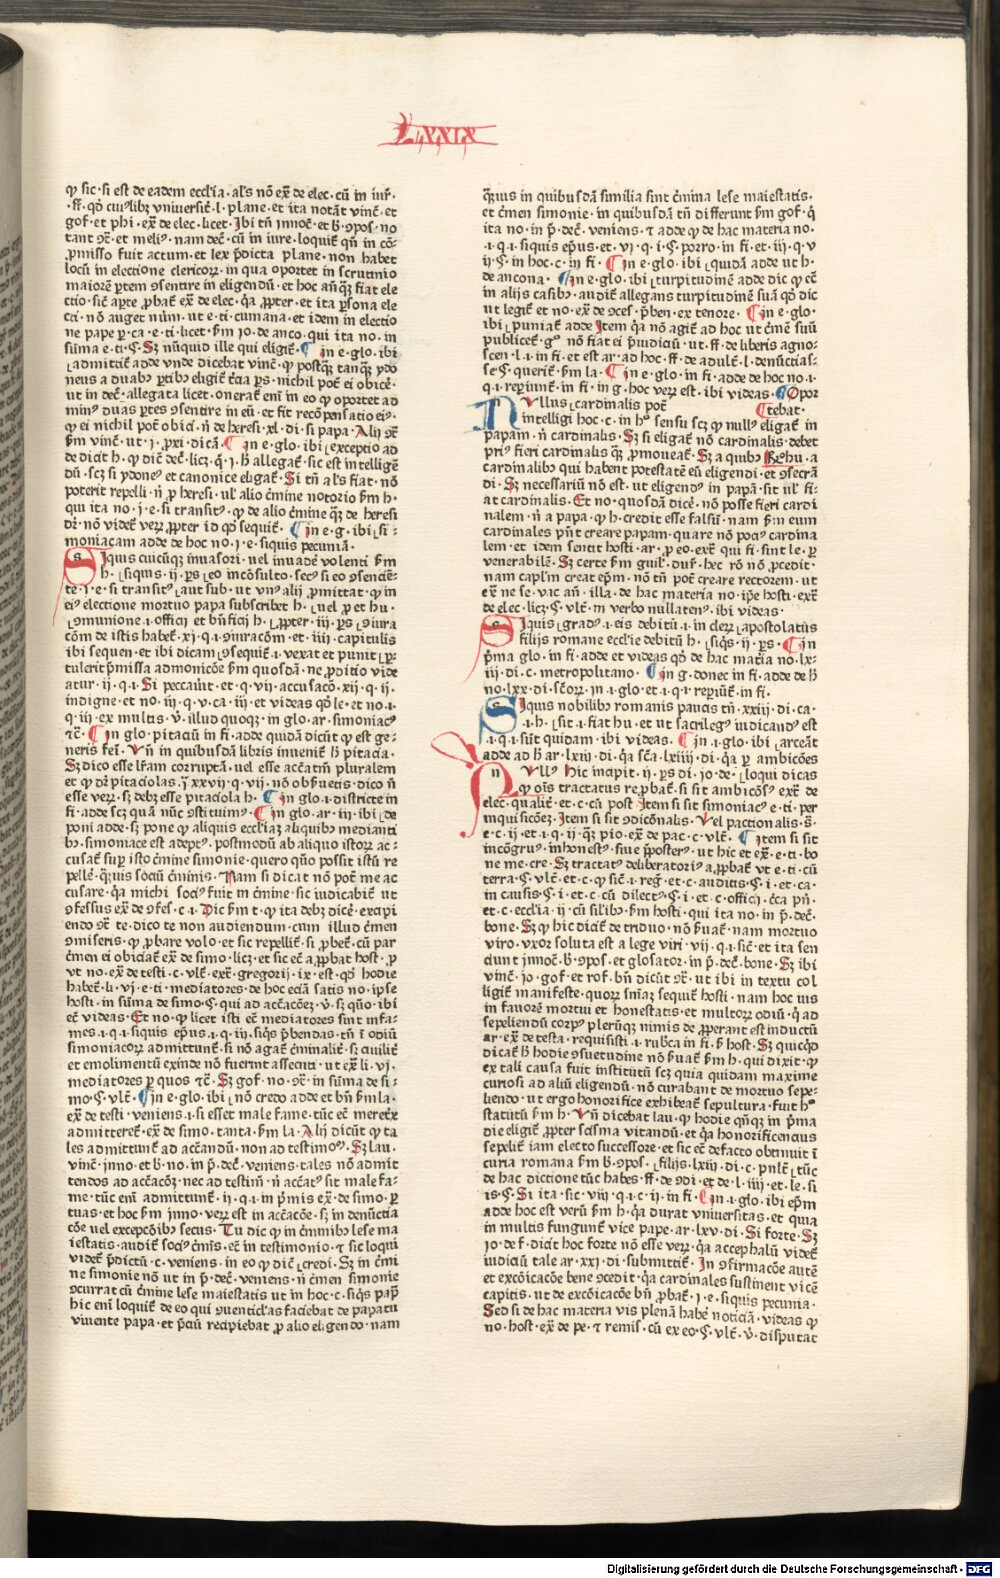 LXXIX
ꝙ sic · si est de eadem eccl'ia · al's nō ex̄ de elec · cū in iur̄ ·
· ff · qd̄ cuiꝰlibꝫ vniuersit̄ · l · plane · et ita notāt vinc̄ · et
gof · et phi · ex̄ de elec · licet · Ibi tn̄ īnoc̄ · et b̄ · ꝯpos · no
tant ꝯc̄ · et meliꝰ · nam dec̄ · cū in iure · loquit̄ qn̄ in cō ·
ꝓmisso fuit actum · et lex p̄dicta plane · non habet
locū in electione clericoꝝ · in qua oportet in scrutinio
maiorē ꝑtem ꝯsentire in eligendū · et hoc an̄qꝫ fiat ele
ctio · sic aꝑte ꝓbat̄ ex̄ de elec · qa ꝓpter · et ita ꝑsona ele
cti · nō auget nūm · ut · e · ti · cumana · et idem in electio
ne pape ꝑ · ca · e · ti · licet · ẜm jo · de anco · qui ita no · in
sūma · e · ti · ꝭ · Sꝫ nūquid ille qui eligit̄ · in · e · glo · ibi
admittit̄ adde vnde dicebat vinc̄ · ꝙ postqꝫ tanqꝫ ydo
neus a duabꝰ ꝑtibꝰ eligit̄ t̄cia ps · nichil pot̄ ei obicē ·
ut in dec̄ · allegata licet · onerat̄ eni in eo ꝙ oportet ad
minꝰ duas ꝑtes ꝯsentire in eū · et fit recōpensatio eiꝰ ·
ꝙ ei nichil pot̄ obici · n̄ de heresi · xl · di · si papa · Alij ꝯc̄
ẜm vinc̄ · ut · j · ꝓxi · dicā · in · e · glo · ibi exceptio ad
de dicit h · ꝙ dic̄ dec̄ · licꝫ · q̄ · j · h̄ allegat̄ · sic est intelligē
dū · scꝫ si ydoneꝰ et canonice eligat̄ · Si tn̄ al's fiat · nō
poterit repelli · n̄ ꝓ heresi · ul' alio c̄mine notorio ẜm h ·
qui ita no · j · e · si transitꝰ · ꝙ de alio c̄mine qꝫ de heresi
dr̄ · nō videt̄ veꝝ ꝓpter id qd̄ sequit̄ · in · e · g · ibi si ·
moniacam adde de hoc no · j · e · siquis pecuniā ·
Siquis cuicūqꝫ inuasori · uel inuadē volenti ẜm
h · siquis · ij · ps eo incōsulto · secꝰ si eo ꝯsenciē ·
te · j · e · si transitꝰ aut sub · ut vnꝰ alij ꝓmittat · ꝙ in
eiꝰ electione mortuo papa subscribet h · uel ꝓ et hu ·
ꝯmunione · i · officij et bn̄ficij h · ꝓpter · iij · ps ꝯiura
cōm de istis habet̄ · xj · q · j · ꝯiuracōm · et · iiij · capitulis
ibi sequen · et ibi dicam sequit̄ · i · vexat et punit ꝑ ·
tulerit p̄missa admonicōe ẜm quosdā · ne ꝓditio vide
atur · ij · q · j · Si peccauit · et · q · vij · accusacō · xij · q · ij ·
indigne · et no · iij · q · v · ca · iij · et videas qd̄ le · et no · i ·
q · iij · ex multis · v̄ · illud quoqꝫ · in glo · ar · simoniacꝰ
⁊c̄ · in glo · pitaciū in fi · adde quidā dicūt ꝙ est ge ·
neris fei · Vn̄ in quibusdā libris inuenit̄ h̄ pitacia ·
Sꝫ dico esse l'ram corruptā · uel esse acc̄atīm pluralem
et ꝙ dr̄ pitaciolas · j · xxvij · q · vij · nō obseruetis · dico n̄
esse veꝝ · sꝫ debꝫ esse pitaciola h · in glo · i · districte in
fi · adde scꝫ qua nūc ꝯstituimꝰ · in glo · ar · iij · ibi de
poni adde · sꝫ pone ꝙ aliquis ecclīaꝫ aliquibꝰ medianti
bꝰ · simoniace est adeptꝰ · postmodū ab aliquo istoꝝ ac ·
cusat̄ suꝑ isto c̄mine simonie · quero quō possit istū re
pelle · qꝫuis sociū c̄minis · Nam si dicat nō pot̄ me ac
cusare · qa michi sociꝰ fuit in c̄mine · sic iudicabit̄ ut
ꝯfessus ex̄ de ꝯfes · c · i · Dic ẜm t · ꝙ ita debꝫ dicē · excipi
endo ꝯc̄ te · dico te non audiendum · cum illud c̄men
ꝯmiseris · ꝙ ꝓbare volo · et sic repellit̄ · si ꝓbet̄ · cū par
c̄men ei obiciat̄ ex̄ de simo · licꝫ · et sic ec̄ a ꝓbbat host · ꝓ
vt no · ex̄ de testi · c · vlt̄ · ext̄ · gregorij · ix · est · qd̄ hodie
habet̄ · li · vj · e · ti · mediatores · de hoc eciā satis no · ipse
hosti · in sūma de simo · ꝭ · qui ad acc̄acōeꝫ · v̄ · sꝫ qn̄o · ibi
ec̄ videas · Et no · ꝙ licet isti ec̄ mediatores sint infa ·
mes · i · q · i · siquis ep̄us · i · q · iij · siqs p̄bendas · tn̄ ī odiū
simoniacoꝝ admittunt̄ · si nō agat̄ c̄minalit̄ · sꝫ ciuilit̄
et emolimentū exinde nō fuerint assecuti · ut ext̄ li · vj ·
mediatores ꝑ quos ⁊c̄ · Sꝫ gof · no · ꝯc̄ · in sūma de si ·
mo · ꝭ · vlt̄ · in · e · glo · ibi nō credo adde et bn̄ ẜm la ·
ex̄ de testi · veniens · i · si esset male fame · tūc ec̄ meretꝛx
admitteret̄ · ex̄ de simo · tanta · ẜm la · Alij dicūt ꝙ ta
les admittunt̄ ad acc̄andū · non ad testimoꝫ · Sꝫ lau ·
vinc̄ · inno · et b̄ · no · in p̄ · dec̄ · veniens · tales nō admit
tendos ad acc̄acōꝫ · nec ad testim̄ · n̄ acc̄atꝰ sit male fa ·
me · tūc eni admittunt̄ · ij · q · i · in p̄mis ex̄ de simo · ꝑ
tuas · et hoc ẜm jnno · veꝝ est in acc̄acōe · sꝫ in denūcia
cōe uel excepcōibꝰ secus · Tu dic ꝙ in c̄minibꝰ lese ma
iestatis · audit̄ sociꝰ c̄mis · ec̄ in testimonio · ⁊ sic loqui
videt̄ p̄dictū · c · veniens · in eo ꝙ dic̄ credi · Sꝫ in c̄mi
ne simonie nō ut in p̄ · dec̄ · veniens · n̄ c̄men simonie
ꝯcurrat cū c̄mine lese maiestatis ut in hoc · c · siqs pap̄
hic eni loquit̄ de eo qui ꝯuenticl'as faciebat de papatu
viuente papa · et p̄ciū recipiebat ꝓ alio eligendo · nam
qꝫuis in quibusdā similia sint c̄mina lese maiestatis ·
et c̄men simonie · in quibusdā tn̄ differunt ẜm gof · q̄
ita no · in p̄ · dec̄ · veniens · ⁊ adde ꝙ de hac materia no ·
· i · q · i · siquis ep̄us · et · vj · q · i · ꝭ · porro · in fi · et · iij · q · v
ij · ꝭ · in hoc · c · in fi · in · e · glo · ibi quidā adde ut h ·
de ancona · in · e · glo · ibi turpitudinē adde dic ꝙ ec̄
in alijs casibꝰ · audit̄ allegans turpitudinē suā qd̄ dic
ut legit̄ et no · ex̄ de ꝯces · p̄ben · ex tenore · in · e · glo ·
ibi puniat̄ adde Item qa nō agit̄ ad hoc ut c̄mē suū
publicet̄ · gº nō fiat ei p̄iudiciū · ut · ff · de liberis agno ·
scen · l · i · in fi · et est ar · ad hoc · ff · de adult̄ · l · denūcias ·
se · ꝭ · querit̄ · ẜm la · in · e · glo · in fi · adde de hoc no · i ·
q · i · reꝑiunt̄ · in fi · in g · hoc veꝝ est · ibi videas · Opor
Nullus cardinalis pot̄ tebat ·
intelligi hoc · c · in hº sensu scꝫ ꝙ nullꝰ eligat̄ in
papam · n̄ cardinalis · Sꝫ si eligat̄ nō cardinalis · debet
priꝰ fieri cardinalis qꝫ ꝓmoueat̄ · Sꝫ a quibꝰ · a
cardinalibꝰ qui habent potestatē eū eligendi · et ꝯsecrā
di · Sꝫ necessariū nō est · ut eligendꝰ in papā · sit ul' fi ·
at cardinalis · Et no · quosdā dicē · nō posse fieri cardi
nalem · n̄ a papa · ꝙ h · credit esse falsū · nam ẜm eum
cardinales pn̄t creare papam · quare nō pocꝰ cardina
lem · et idem sentit hosti · ar · ꝓ eo · ext̄ qui fi · sint le · ꝑ
venerabilē · Sꝫ certe ẜm guil' · dur̄ · hec rō nō ꝓcedit ·
nam capl'm creat ep̄m · nō tn̄ pot̄ creare rectorem · ut
ex̄ ne se · vac · an̄ · illa · de hac materia no · ip̄e hosti · ext̄
de elec · licꝫ · ꝭ · vlt̄ · in verbo nullatenꝰ · ibi videas ·
Siquis gradꝰ · i · eis debitū · i · in cleꝝ apostolatus
filijs romane eccl'ie debitū h · siqs · ij · ps · in
p̄ma glo · in fi · adde et videas qd̄ de hac mat̄ia no · lx ·
iij · di · c · metropolitano · in g · donec in fi · adde de h̄
no · lxx · di · sc̄oꝝ · in · i · glo · et · i · q · i · reꝑiūt̄ · in fi ·
Siquis nobilibꝰ romanis paucis tn̄ · xxiij · di · ca ·
i · h · sit · i · fiat hu · et ut sacrilegꝰ iudicandꝰ est
· i · q · i · sūt quidam · ibi videas · in · i · glo · ibi arceāt̄
adde ad h̄ ar · lxij · di · qa sc̄a · lxiiij · di · qa ꝑ ambicōes
Nullꝰ hic incipit · ij · ps di · jo · de · loqui dicas
ꝙ oīs tractatus reꝓbat̄ · si sit ambicōsꝰ ex̄ de
elec · qualit̄ · et · c · cū post · Item si sit simoniacꝰ · e · ti · per
inquisicōeꝫ · Item si sit ꝯdicōnalis · Vel pactionalis · s̄ ·
· e · c · ij · et · i · q · ij · qꝫ pio · ex̄ de pac · c · vlt̄ · item si sit
incōgruꝰ · inhonestꝰ · siue p̄posterꝰ · ut hic et ex̄ · e · ti · bo
ne me · cre · Sꝫ tractatꝰ deliberatoriꝰ a ꝓbbat̄ · vt · e · ti · cū
terra · ꝭ · vlt̄ · et · c · ꝙ sic̄ · i · reḡ · et · c · auditis · ꝭ · i · et · ca ·
in causis · ꝭ · i · et · c · cū dilectꝰ · ꝭ · i · et · c · officij · c̄ca pn̄ ·
et · c · eccl'ia · ij · cū sil'ibꝰ ẜm hosti · qui ita no · in p̄ · dec̄ ·
bone · Sꝫ ꝙ hic dicit̄ de triduo · nō ẜuat̄ · nam mortuo
viro · vxor soluta est a lege viri · vij · q · i · sic̄ · et ita sen
ciunt jnnoc̄ · b̄ · ꝯpos · et glosator · in p̄ · dec̄ · bone · Sꝫ ibi
vinc̄ · jo · gof · et rof · bn̄ dicūt ꝯc̄ · ut ibi in textu col
ligit̄ manifeste · quoꝝ sn̄iaꝫ sequit̄ hosti · nam hoc ius
in fauorē mortui et honestatis · et multoꝝ odiū · qa ad
sepeliendū corpꝰ pleruqꝫ nimis de ꝓperant est inductū
ar · ex̄ de testa · requisisti · i · rub'ca in fi · ẜm host · Sꝫ quicqd̄
dicat̄ h̄ hodie ꝯsuetudine nō ẜuat̄ ẜm h · qui dixit · ꝙ
ex tali causa fuit institutū scꝫ quia quidam maxime
curiosi ad aliū eligendū · nō curabant de mortuo sepe ·
liendo · ut ergo honorifice exhibeat̄ sepultura · fuit hº
statutū ẜm h · Vn̄ dicebat lau · ꝙ hodie qn̄qꝫ in p̄ma
die eligit̄ ꝓpter scisma vitandū · et qa honorificencius
sepelit̄ iam electo successore · et sic ec̄ defacto obtinuit ī
curia romana ẜm b̄ · ꝯpos · filijs · lxiij · di · c · pn̄lt̄ tūc
de hac dictione tūc habes · ff · de ꝯdi · et de · l · iiij · et · le · si
is · ꝭ · Si ita · sic · viij · q · i · c · ij · in fi · in · i · glo · ibi ep̄m
adde hoc est verū ẜm h · qa durat vniuersitas · et quia
in multis fungunt̄ vice pape · ar · lxv · di · Si forte · Sꝫ
jo · de f · dicit hoc forte nō esse veꝝ · qa accephalū videt̄
iudiciū tale ar · xxi · di · submittit̄ · In ꝯfirmacōe autē
et excōicacōe bene ꝯcedit · qa cardinales sustinent vicē
capitis · ut de excōicacōe bn̄ ꝓbat̄ · j · e · siquis pecunia ·
Sed si de hac materia vis plenā habē noticiā · videas ꝙ
no · host · ex̄ de pe · ⁊ remis · cū ex eo · ꝭ · vlt̄ · v̄ · disputat
Digitalisierung gefördert durch die Deutsche Forschungsgemeinschaft - DFG